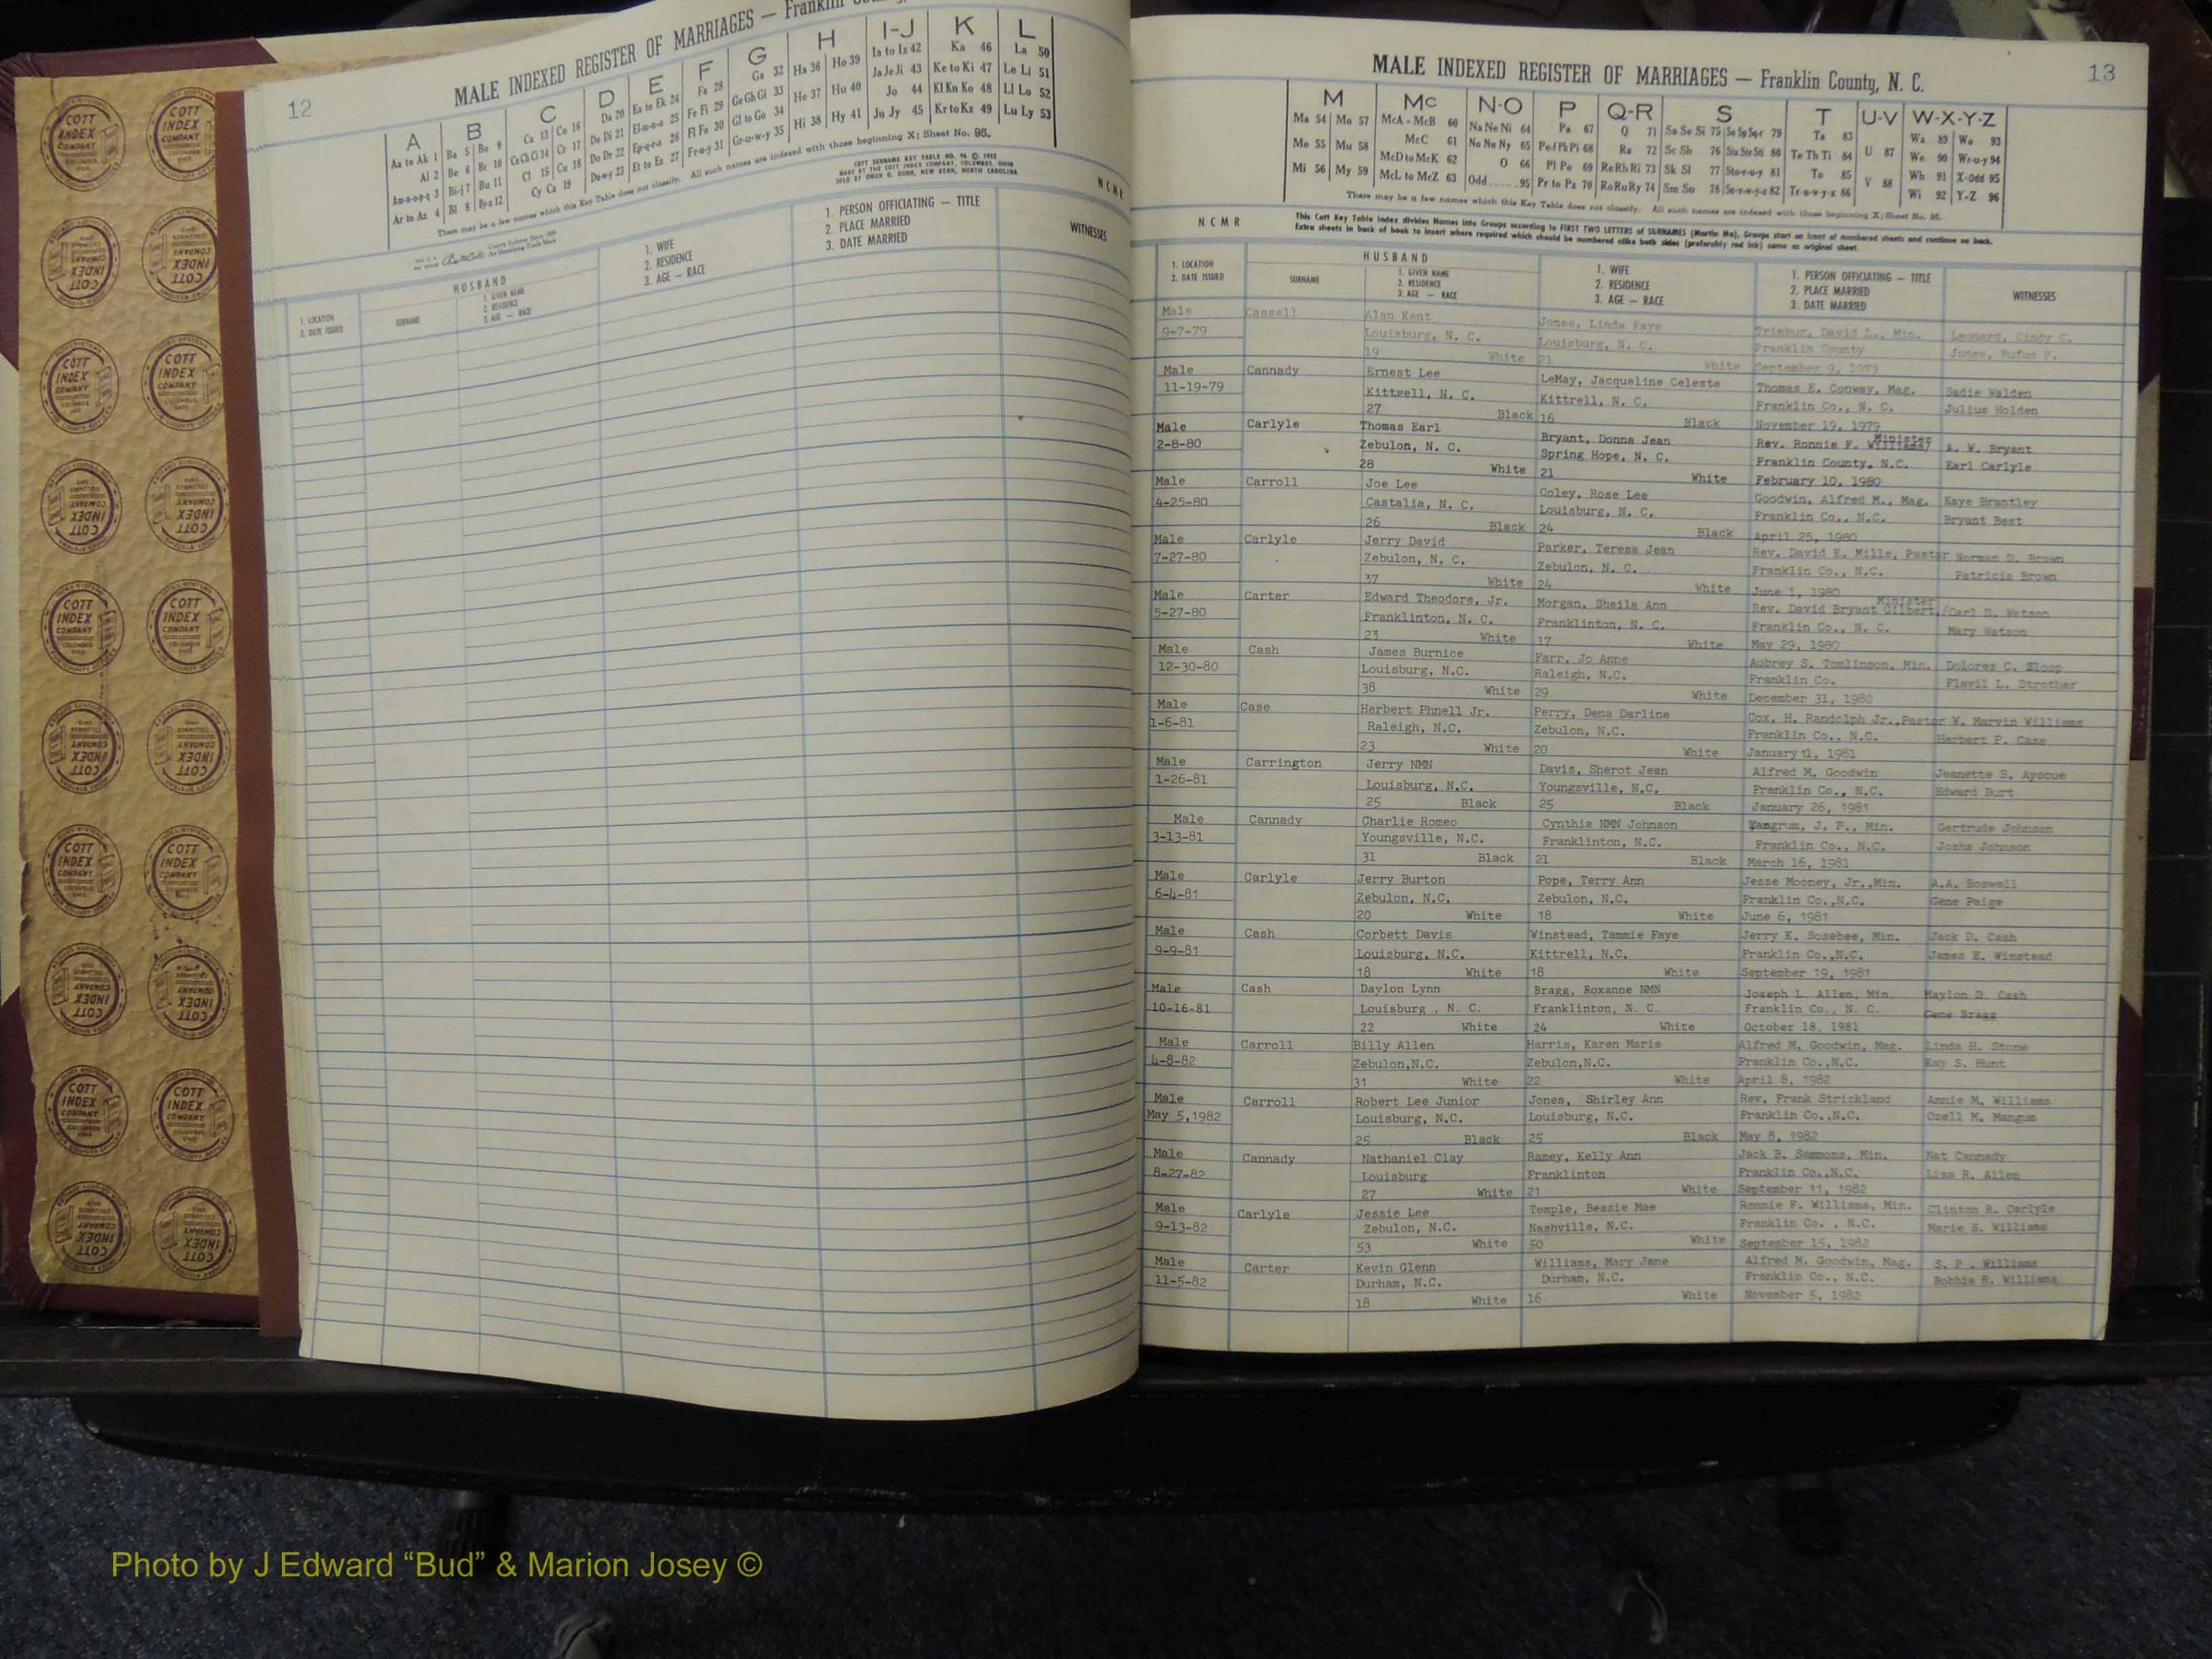 12
MALE INDEXED REGISTER OF MARRIAGES — Franklin
A B C D E F G H I-J K L
Aa to Ak 1 Ba 5 Bo 9 Ca 13 Co 16 Da 20 Ea to Ek 24 Fa 28 Ga 32 Ha 36 Ho 39 Ia to Iz 42 Ka 46 La 50
Al 2 Be 6 Br 10 Ce Ch Ci 14 Cr 17 De Di 21 El-m-n-o 25 Fe Fi 29 Ge Gh Gi 33 He 37 Hu 40 Ja Je Ji 43 Ke to Ki 47 Le Li 51
Am-n-o-p-q 3 Bi-j 7 Bu 11 Cl 15 Cu 18 Do Dr 22 Ep-q-r-s 26 Fl Fo 30 Gl to Go 34 Hi 38 Hy 41 Jo 44 Kl Kn Ko 48 Ll Lo 52
Ar to Az 4 Bl 8 By-z 12 Cy Cz 19 Du-w-y 23 Et to Ez 27 Fr-u-y 31 Gr-u-w-y 35 Ju Jy 45 Kr to Kz 49 Lu Ly 53
There may be a few names which this Key Table does not classify. All such names are indexed with those beginning X; Sheet No. 95.
COTT SURNAME KEY TABLE NO. 96 © 1952
MADE BY THE COTT INDEX COMPANY, COLUMBUS, OHIO
SOLD BY OWEN G. DUNN, NEW BERN, NORTH CAROLINA
N C M R
1. LOCATION
2. DATE ISSUED
HUSBAND
SURNAME
1. GIVEN NAME
2. RESIDENCE
3. AGE — RACE
1. WIFE
2. RESIDENCE
3. AGE — RACE
1. PERSON OFFICIATING — TITLE
2. PLACE MARRIED
3. DATE MARRIED
WITNESSES
COTT INDEX COMPANY
13
MALE INDEXED REGISTER OF MARRIAGES — Franklin County, N. C.
M Mc N-O P Q-R S T U-V W-X-Y-Z
Ma 54 Mo 57 McA - McB 60 Na Ne Ni 64 Pa 67 Q 71 Sa Se Si 75 So Sp Sq-r 79 Ta 83 U 87 Wa 89 Wo 93
Me 55 Mu 58 McC 61 No Nu Ny 65 Pe Ph Pi 68 Ra 72 Sc Sh 76 Sta Ste Sti 80 Te Th Ti 84 V 88 We 90 Wr-u-y 94
Mi 56 My 59 McD to McK 62 O 66 Pl Po 69 Re Rh Ri 73 Sk Sl 77 Sto-r-u-y 81 To 85 Wh 91 X-Odd 95
McL to McZ 63 Odd 95 Pr to Pz 70 Ro Ru Ry 74 Sm Sn 78 Su-v-w-y-z 82 Tr-u-w-y-z 86 Wi 92 Y-Z 96
There may be a few names which this Key Table does not classify. All such names are indexed with those beginning X; Sheet No. 95.
N C M R
This Cott Key Table Index divides Names into Groups according to FIRST TWO LETTERS of SURNAMES (Martin Ma), Groups start on front of numbered sheets and continue on back.
Extra sheets in back of book to insert where required which should be numbered alike both sides (preferably red ink) same as original sheet.
1. LOCATION
2. DATE ISSUED
HUSBAND
SURNAME
1. GIVEN NAME
2. RESIDENCE
3. AGE — RACE
1. WIFE
2. RESIDENCE
3. AGE — RACE
1. PERSON OFFICIATING — TITLE
2. PLACE MARRIED
3. DATE MARRIED
WITNESSES
Male Cassell Alan Kent Jones, Linda Faye Trimbur, David L., Min. Leonard, Cindy C.
9-7-79 Louisburg, N. C. Louisburg, N. C. Franklin County Jones, Rufus F.
19 White 21 White September 9, 1979
Male Cannady Ernest Lee LeMay, Jacqueline Celeste Thomas E. Conway, Mag. Sadie Walden
11-19-79 Kittrell, N. C. Kittrell, N. C. Franklin Co., N. C. Julius Holden
27 Black 16 Black November 19, 1979
Male Carlyle Thomas Earl Bryant, Donna Jean Rev. Ronnie F. Williams/ Minister A. W. Bryant
2-8-80 Zebulon, N. C. Spring Hope, N. C. Franklin County, N.C. Earl Carlyle
28 White 21 White February 10, 1980
Male Carroll Joe Lee Coley, Rose Lee Goodwin, Alfred M., Mag. Kaye Brantley
4-25-80 Castalia, N. C. Louisburg, N. C. Franklin Co., N.C. Bryant Best
26 Black 24 Black April 25, 1980
Male Carlyle Jerry David Parker, Teresa Jean Rev. David E. Mills, Pastor Norman D. Brown
7-27-80 Zebulon, N. C. Zebulon, N. C. Franklin Co., N.C. Patricia Brown
37 White 24 White June 1, 1980
Male Carter Edward Theodore, Jr. Morgan, Sheila Ann Rev. David Bryant Gilbert,/ Minister Carl D. Watson
5-27-80 Franklinton, N. C. Franklinton, N. C. Franklin Co., N. C. Mary Watson
23 White 17 White May 29, 1980
Male Cash James Burnice Farr, Jo Anne Aubrey S. Tomlinson, Min. Dolores C. Sloop
12-30-80 Louisburg, N.C. Raleigh, N.C. Franklin Co. Flavil L. Strother
38 White 29 White December 31, 1980
Male Case Herbert Phnell Jr. Perry, Dena Darline Cox, H. Randolph Jr.,Pastor W. Marvin Williams
1-6-81 Raleigh, N.C. Zebulon, N.C. Franklin Co., N.C. Herbert P. Case
23 White 20 White January 11, 1981
Male Carrington Jerry NMN Davis, Sherot Jean Alfred M. Goodwin Jeanette S. Ayscue
1-26-81 Louisburg, N.C. Youngsville, N.C. Franklin Co., N.C. Edward Burt
25 Black 25 Black January 26, 1981
Male Cannady Charlie Romeo Cynthia NMN Johnson Mangrum, J. P., Min. Gertrude Johnson
3-13-81 Youngsville, N.C. Franklinton, N.C. Franklin Co., N.C. Johnson
31 Black 21 Black March 16, 1981
Male Carlyle Jerry Burton Pope, Terry Ann Jesse Mooney, Jr.,Min. A.A. Boswell
6-4-81 Zebulon, N.C. Zebulon, N.C. Franklin Co.,N.C. Gene Paige
20 White 18 White June 6, 1981
Male Cash Corbett Davis Winstead, Tammie Faye Jerry K. Sosebee, Min. Jack D. Cash
9-9-81 Louisburg, N.C. Kittrell, N.C. Franklin Co.,N.C. James E. Winstead
18 White 18 White September 19, 1981
Male Cash Daylon Lynn Bragg, Roxanne NMN Joseph L. Allen, Min. Maylon D. Cash
10-16-81 Louisburg , N. C. Franklinton, N. C. Franklin Co., N. C. Gene Bragg
22 White 24 White October 18, 1981
Male Carroll Billy Allen Harris, Karen Marie Alfred M. Goodwin, Mag. Linda H. Stone
4-8-82 Zebulon,N.C. Zebulon,N.C. Franklin Co.,N.C. Kay S. Hunt
31 White 22 White April 8, 1982
Male Carroll Robert Lee Junior Jones, Shirley Ann Rev. Frank Strickland Annie M. Williams
May 5,1982 Louisburg, N.C. Louisburg, N.C. Franklin Co.,N.C. Ozell M. Mangum
25 Black 25 Black May 8, 1982
Male Cannady Nathaniel Clay Ramey, Kelly Ann Jack B. Sammons, Min. Nat Cannady
8-27-82 Louisburg Franklinton Franklin Co.,N.C. Lisa R. Allen
27 White 21 White September 11, 1982
Male Carlyle Jessie Lee Temple, Bessie Mae Ronnie F. Williams, Min. Clinton R. Carlyle
9-13-82 Zebulon, N.C. Nashville, N.C. Franklin Co. , N.C. Marie S. Williams
53 White 50 White September 15, 1982
Male Carter Kevin Glenn Williams, Mary Jane Alfred M. Goodwin, Mag. S. P . Williams
11-5-82 Durham, N.C. Durham, N.C. Franklin Co., N.C. Bobbie R. Williams
18 White 16 White November 5, 1982
Photo by J Edward “Bud” & Marion Josey ©